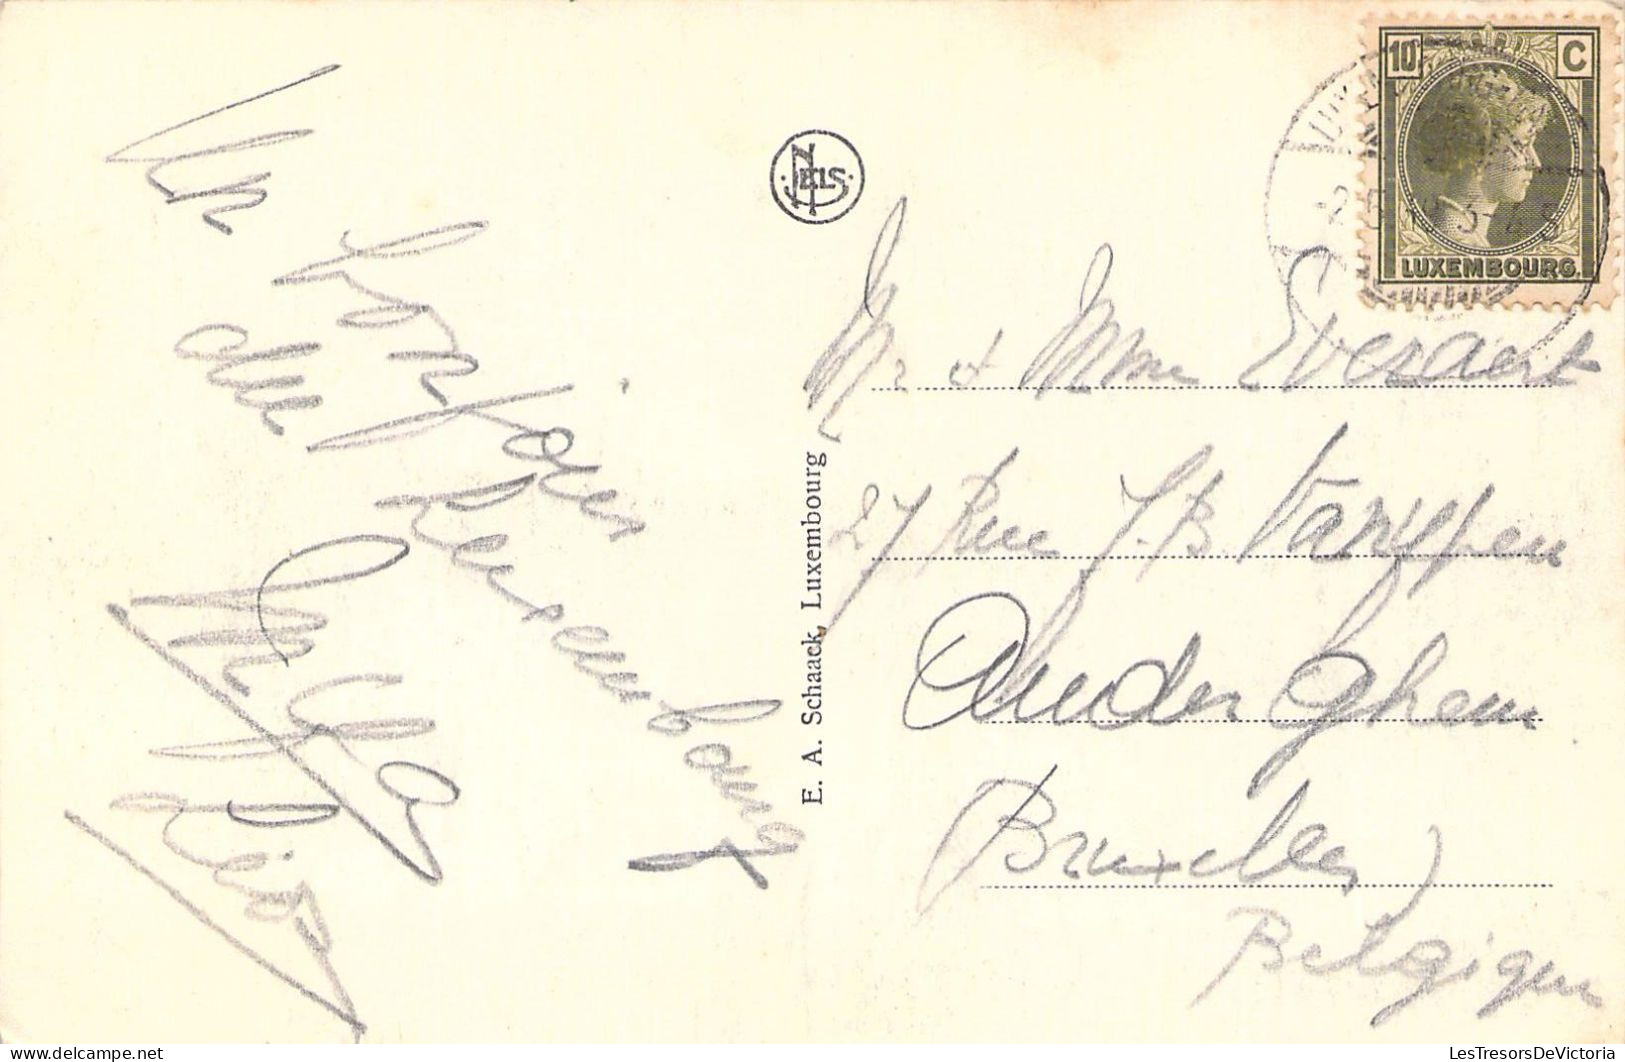 Un bonjour
du Luxembourg
NELS
E. A. Schaack, Luxembourg
10 C
LUXEMBOURG.
Mr et Mme Everaert
27 Rue J. B. Vanypen
Auderghem
(Bruxelles)
Belgique
LesTresorsDeVictoria